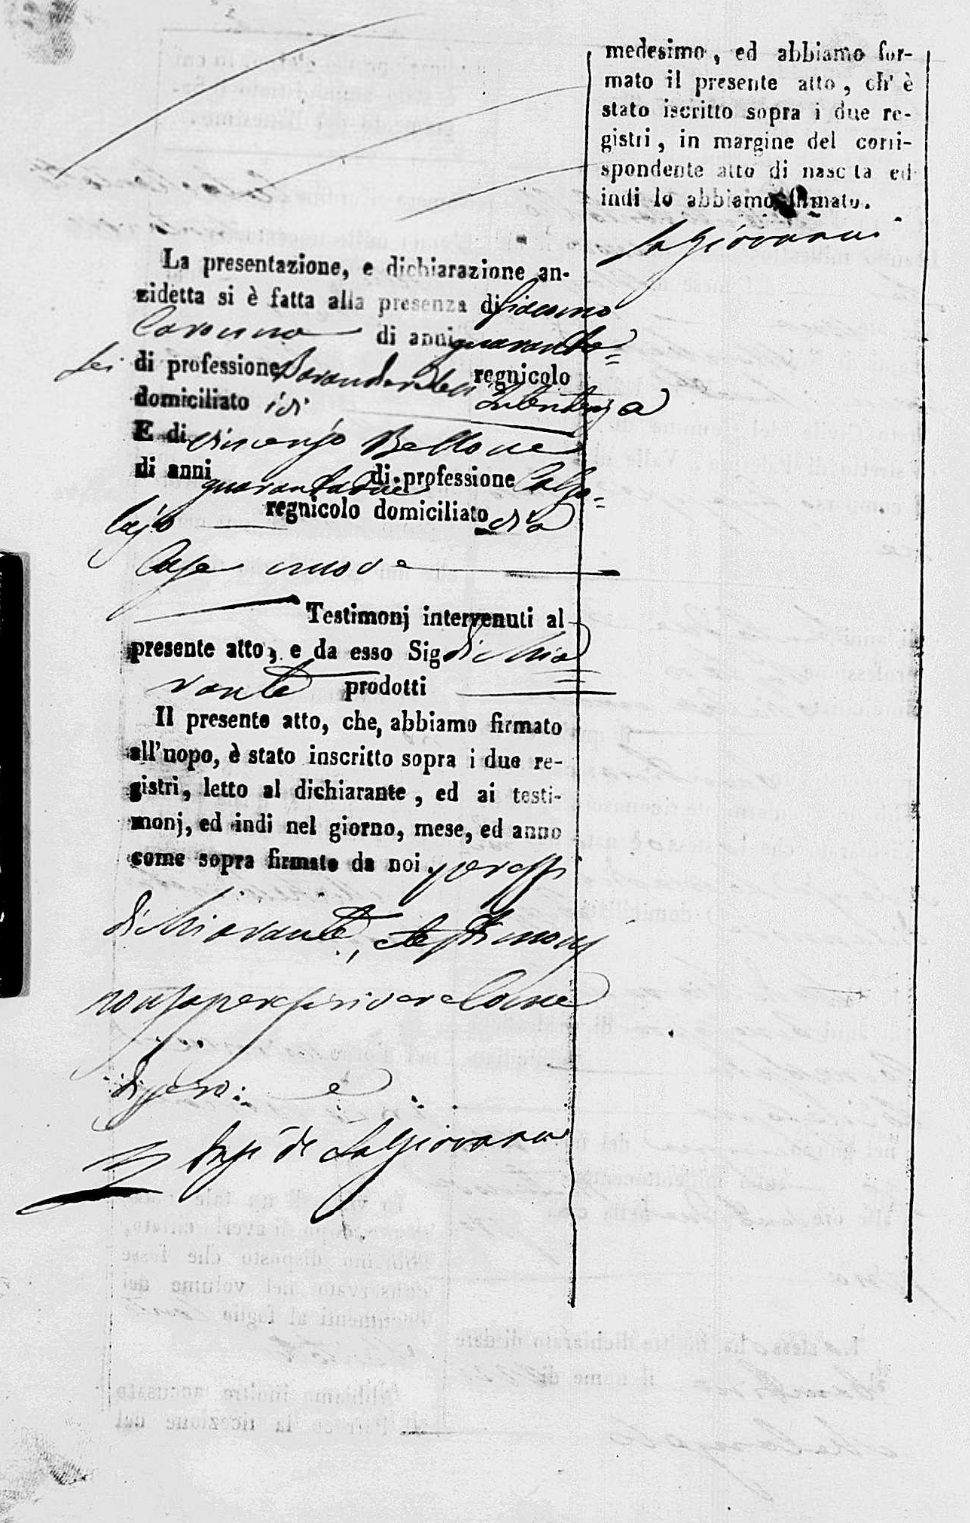 La presentazione, e dichiarazione an-
zidetta si è fatta alla presenza di Giacomo
di anni quaranta=
sei di professione regnicolo
domiciliato
E di Vincenzo Bellone
di anni quarantadue di professione Calzo=
lajo regnicolo domiciliato
Case nuove
Testimonj intervenuti al
presente atto, e da esso Sig. dichia
rante prodotti
Il presente atto, che, abbiamo firmato
all'uopo, è stato inscritto sopra i due re-
gistri, letto al dichiarante, ed ai testi-
monj, ed indi nel giorno, mese, ed anno
come sopra firmato da noi,
dichiarante, e testimonj
non saper scrivere come
Lagiovane
medesimo, ed abbiamo for-
mato il presente atto, ch'è
stato iscritto sopra i due re-
gistri, in margine del corri-
spondente atto di nascita ed
indi lo abbiamo firmato.
Lagiovane